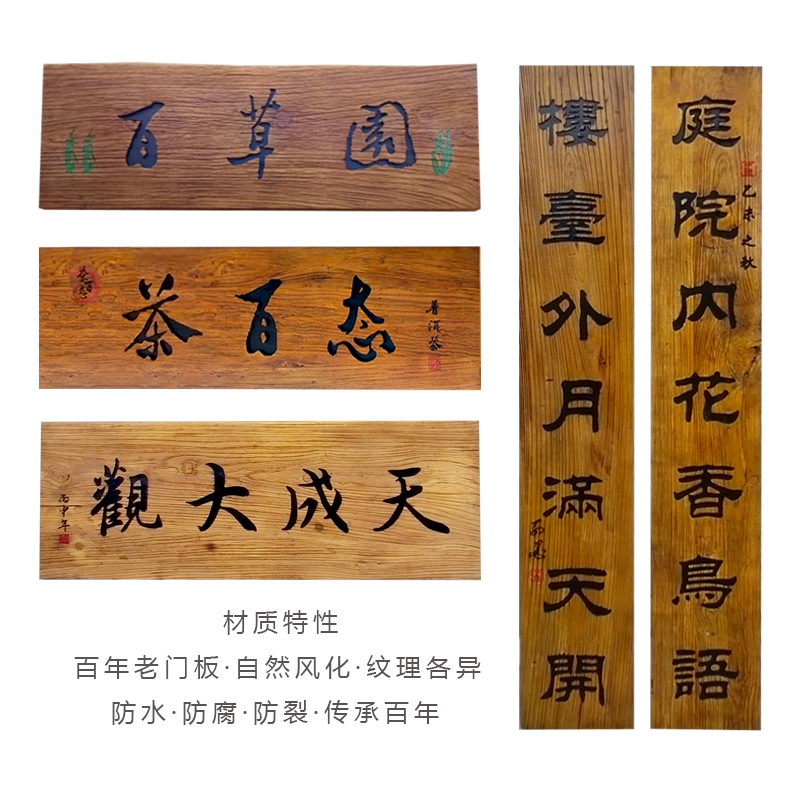 百草園
茶百态
茶百态
普洱茶
觀大成天
丙申年
樓臺外月滿天開
庭院内花香鳥語
乙未之秋
材质特性
百年老门板·自然风化·纹理各异
防水·防腐·防裂·传承百年